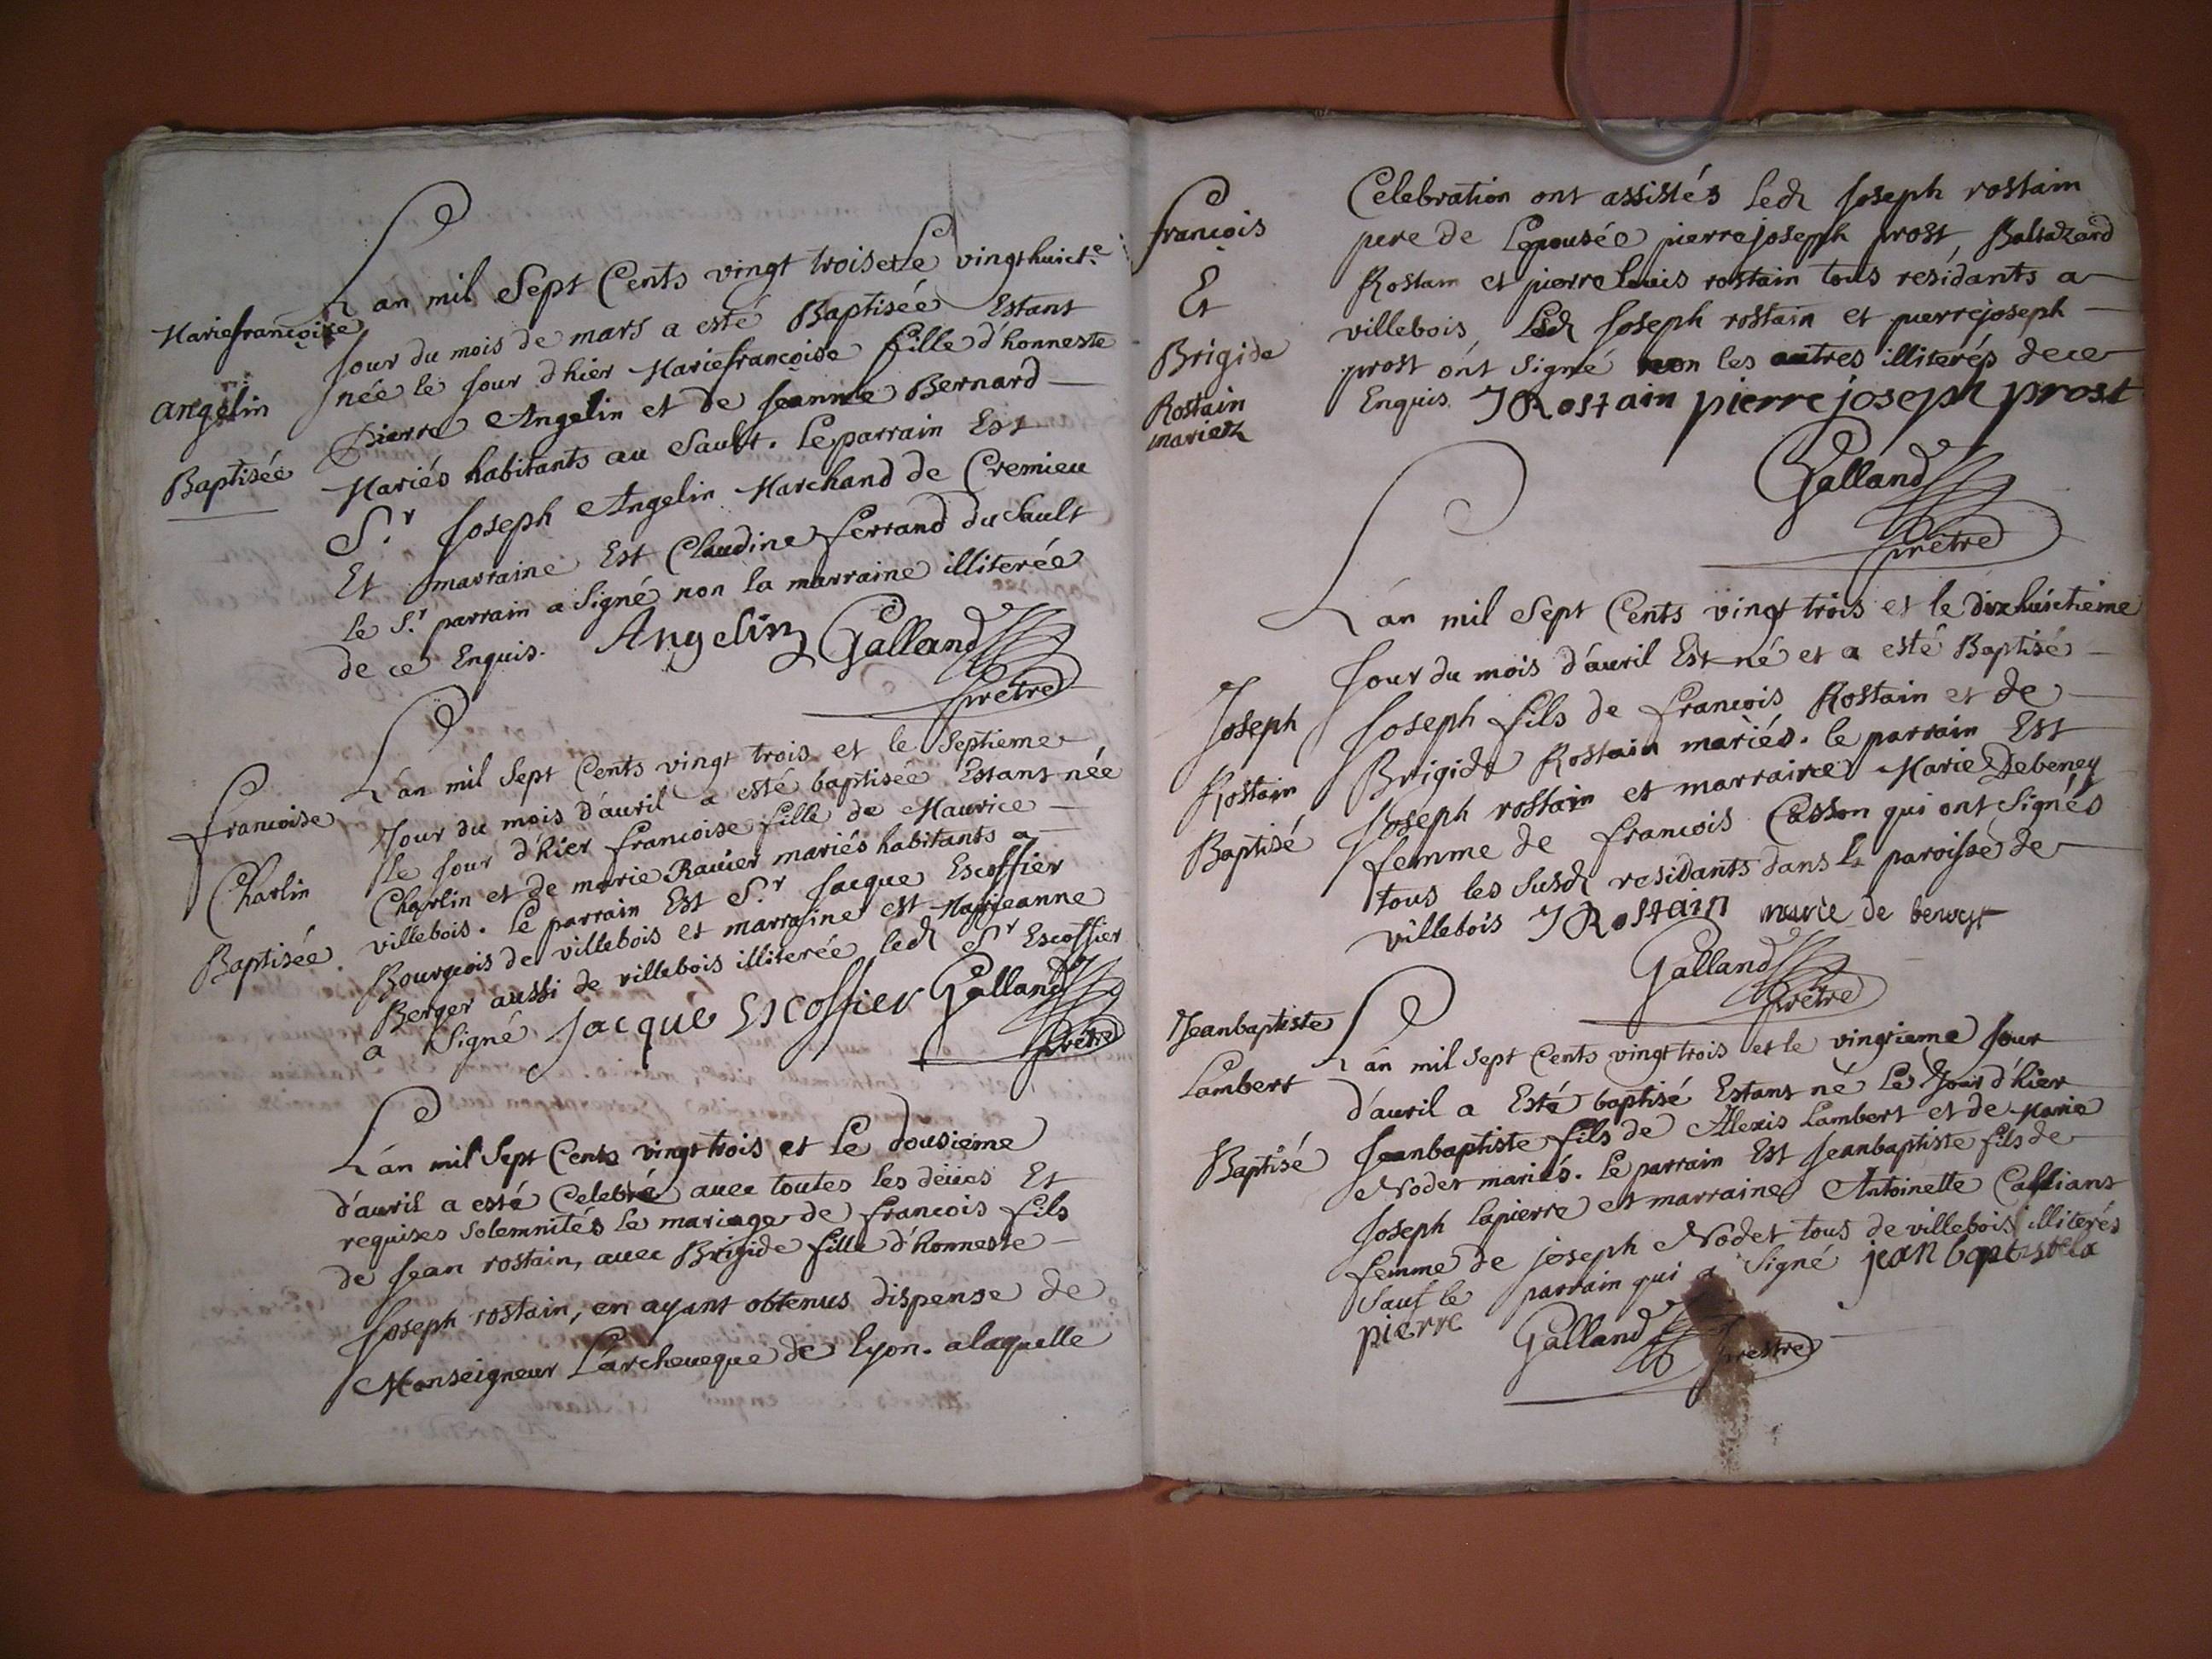 Mariefrançoise
Angelin
Baptisée
L'an mil Sept Cents vingt trois et le vingthuict.e
Jour du mois de mars a esté Baptisée Estant
née le Jour d'hier Mariefrançoise fille d'honneste
Pierre Angelin et de Jeanne Bernard
Mariés habitants au Sault. Le parrain Est
S.r Joseph Angelin Marchand de Cremieu
Et marraine Est Claudine ferrand du Sault
le S.r parrain a Signé non la marraine illiterée
de ce Enquis. Angelin Galland
prêtre
francoise
Charlin
Baptisée
L'an mil Sept Cents vingt trois et le Septieme
Jour du mois d'auril a esté baptisée Estant née
le Jour d'hier francoise fille de Maurice
Charlin et de marie Rauier mariés habitants a
villebois. Le parrain Est S.r Jacque Escoffier
Bourgeois de villebois et marraine est Marieanne
Berger aussi de villebois illiterée led. S.r Escoffier
a Signé Jacque Escoffier Galland
prêtre
L'an mil Sept Cents vingt trois et Le dousieme
d'auril a esté Celebré auec toutes les deües Et
requises Solemnités le mariage de francois fils
de Jean rostain, auec Brigide fille d'honneste
Joseph rostain, en ayant obtenus dispense de
Monseigneur L'archeueque de Lyon. a laquelle
francois
Et
Brigide
Rostain
mariez
Celebration ont assistés Led. Joseph rostain
pere de Lepousée pierrejoseph prost, Baltazard
Rostain et pierre louis rostain tous residants a
villebois, Led. Joseph rostain et pierrejoseph
prost ont Signé non les autres illiterés de ce
Enquis. J Rostain pierre joseph prost
Galland
prêtre
Joseph
Rostain
Baptisé
L'an mil Sept Cents vingt trois et le dixhuictieme
Jour du mois d'auril Est né et a esté Baptisé
Joseph fils de francois Rostain et de
Brigide Rostain mariés. le parrain Est
Joseph rostain et marraine Marie Debeney
femme de francois Casson qui ont Signés
tous les Susd. residants dans la paroisse de
villebois J Rostain marie de
Galland
prêtre
Jeanbaptiste
Lambert
Baptisé
L'an mil Sept Cents vingt trois et le vingtieme Jour
d'auril a Esté baptisé Estant né Le Jour d'hier
Jeanbaptiste fils de Alexis Lambert et de Marie
Nodet mariés. Le parrain Est Jeanbaptiste fils de
Joseph Lapierre et marraine Antoinette
femme de joseph Nodet tous de villebois illiterés
Sauf le parrain qui a Signé jean baptiste la
pierre Galland prestre